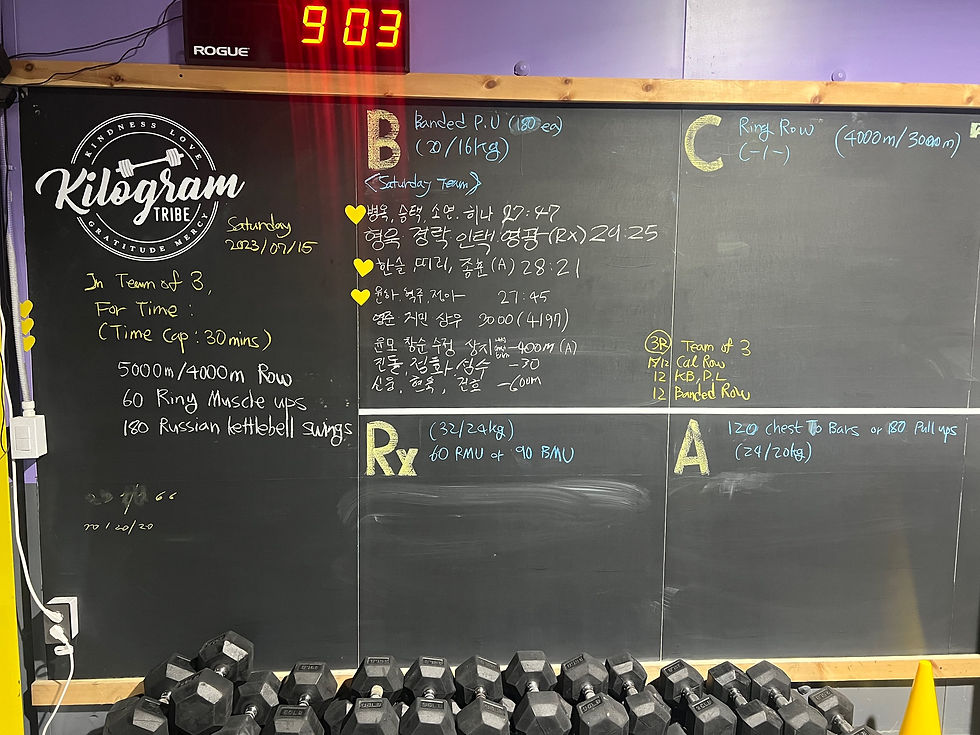 9 03
ROGUE
KINDNESS LOVE
Kilogram
TRIBE
GRATITUDE MERCY
Saturday
2023/07/15
In Team of 3,
For Time :
(Time Cap : 30mins)
5000m/4000m Row
60 Ring Muscle ups
180 Russian kettlebell swings
66
20/20/20
B
Banded P.U (180 ea)
(20/16kg)
<Saturday Team>
병욱, 승택, 소연, 하나 27:47
형욱 경락 인택 영광 (Rx) 29:25
한솔, 띠리, 종훈 (A) 28:21
윤하, 혁주, 전아 27:45
영준 지민 상우 3000 (4197)
윤모 장순 수정 상지 -400m (A)
진돌, 정화, 성수 -30
-600m
C
Ring Row
(-/-)
(4000m/3000m)
3R Team of 3
15/12 Cal Row
12 KB, D.L
12 Banded Row
Rx
(32/24kg)
60 RMU or 90 BMU
A
120 chest To Bars or 180 Pull ups
(24/20kg)